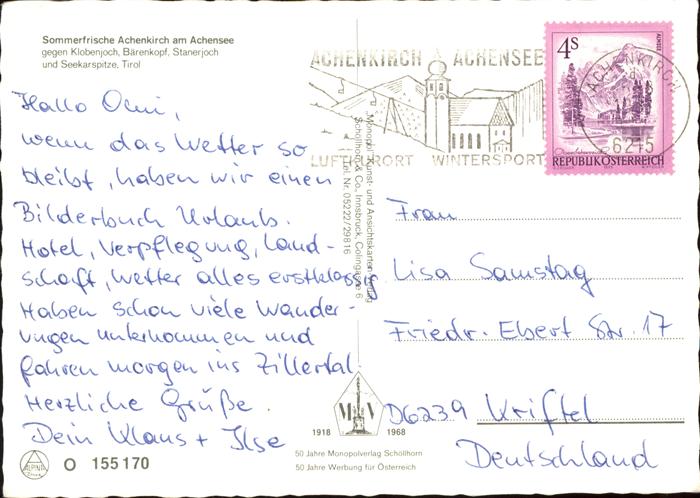 Sommerfrische Achenkirch am Achensee
gegen Klobenjoch, Bärenkopf, Stanerjoch
und Seekarspitze, Tirol
Hallo Omi,
wenn das Wetter so
bleibt, haben wir einen
Bilderbuch Urlaub.
Hotel, Verpflegung, Land-
schaft, Wetter alles erstklassig
Haben schon viele Wander-
ungen unternommen und
fahren morgen ins Zillertal.
Herzliche Grüße.
Dein Klaus + Ilse
ALPINA
O 155 170
ACHENKIRCH A ACHENSEE
LUFTKURORT WINTERSPORT
4S
ALMSEE
REPUBLIK ÖSTERREICH
ACHENKIRCH
6215
„Monopol" Kunst- und Ansichtskarten-Verlag
Schöllhorn & Co., Innsbruck, Colingasse 6
Tel. Nr. 05222/29816
Frau
Lisa Samstag
Friedr. Ebert Str. 17
D6239 Kriftel
Deutschland
M V
1918 1968
50 Jahre Monopolverlag Schöllhorn
50 Jahre Werbung für Österreich